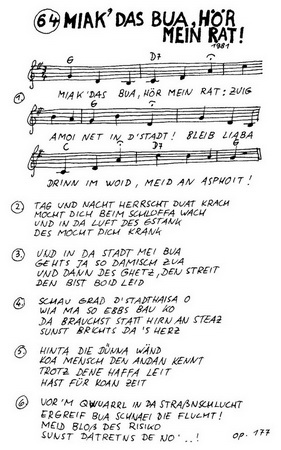 64 MIAK' DAS BUA, HÖR
MEIN RAT!
1981
G D7
1. MIAK' DAS BUA, HÖR MEIN RAT: ZUIG
G
AMOI NET IN D'STADT! BLEIB LIABA
C D7 G
DRINN IM WOID, MEID AN ASPHOIT!
2. TAG UND NACHT HERRSCHT DUAT KRACH
MOCHT DICH BEIM SCHLOFFA WACH
UND IN DA LUFT DES GSTANK
DES MOCHT DICH KRANK
3. UND IN DA STADT MEI BUA
GEHTS JA SO DAMISCH ZUA
UND DANN DES GHETZ, DEN STREIT
DEN BIST BOID LEID
4. SCHAU GRAD D'STADTHAISA O
WIA MA SO EBBS BAU KO
DA BRAUCHST STATT HIRN AN STEAZ
SUNST BRICHTS DA 'S HERZ
5. HINTA DIE DÜNNA WÄND
KOA MENSCH DEN ANDAN KENNT
TROTZ DENE HAFFA LEIT
HAST FÜR KOAN ZEIT
6. VOR'M QWUARRL IN DA STRAßNSCHLUCHT
ERGREIF BUA SCHNAEI DIE FLUCHT!
MEID BLOß DES RISIKO
SUNST DATRETNS DE NO'..!
OP. 177